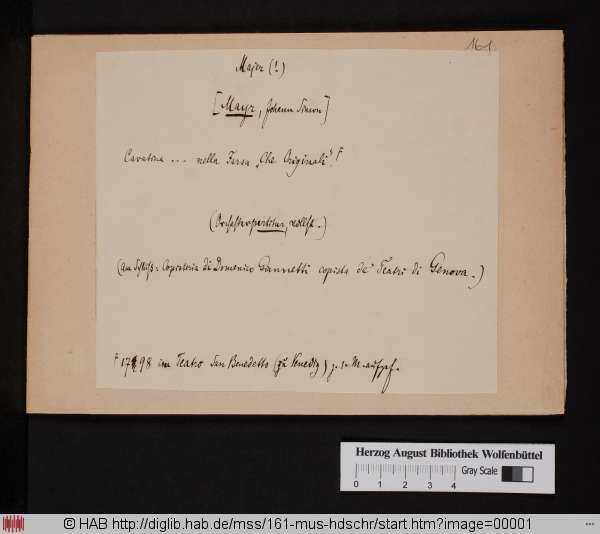 161
Majer (!)
[Mayr, Johann Simon]
Cavatina ... nella Farsa „Che Originali". F
(Orchesterpartitur, vollst.)
(am Schluß: Copisteria di Domenico Giannetti copista de' Teatri di Genova.)
F 1798 im Teatro San Benedetto (zu Venedig) z. 1. M. aufgef.
Herzog August Bibliothek Wolfenbüttel
Gray Scale
0 1 2 3 4
© HAB http://diglib.hab.de/mss/161-mus-hdschr/start.htm?image=00001